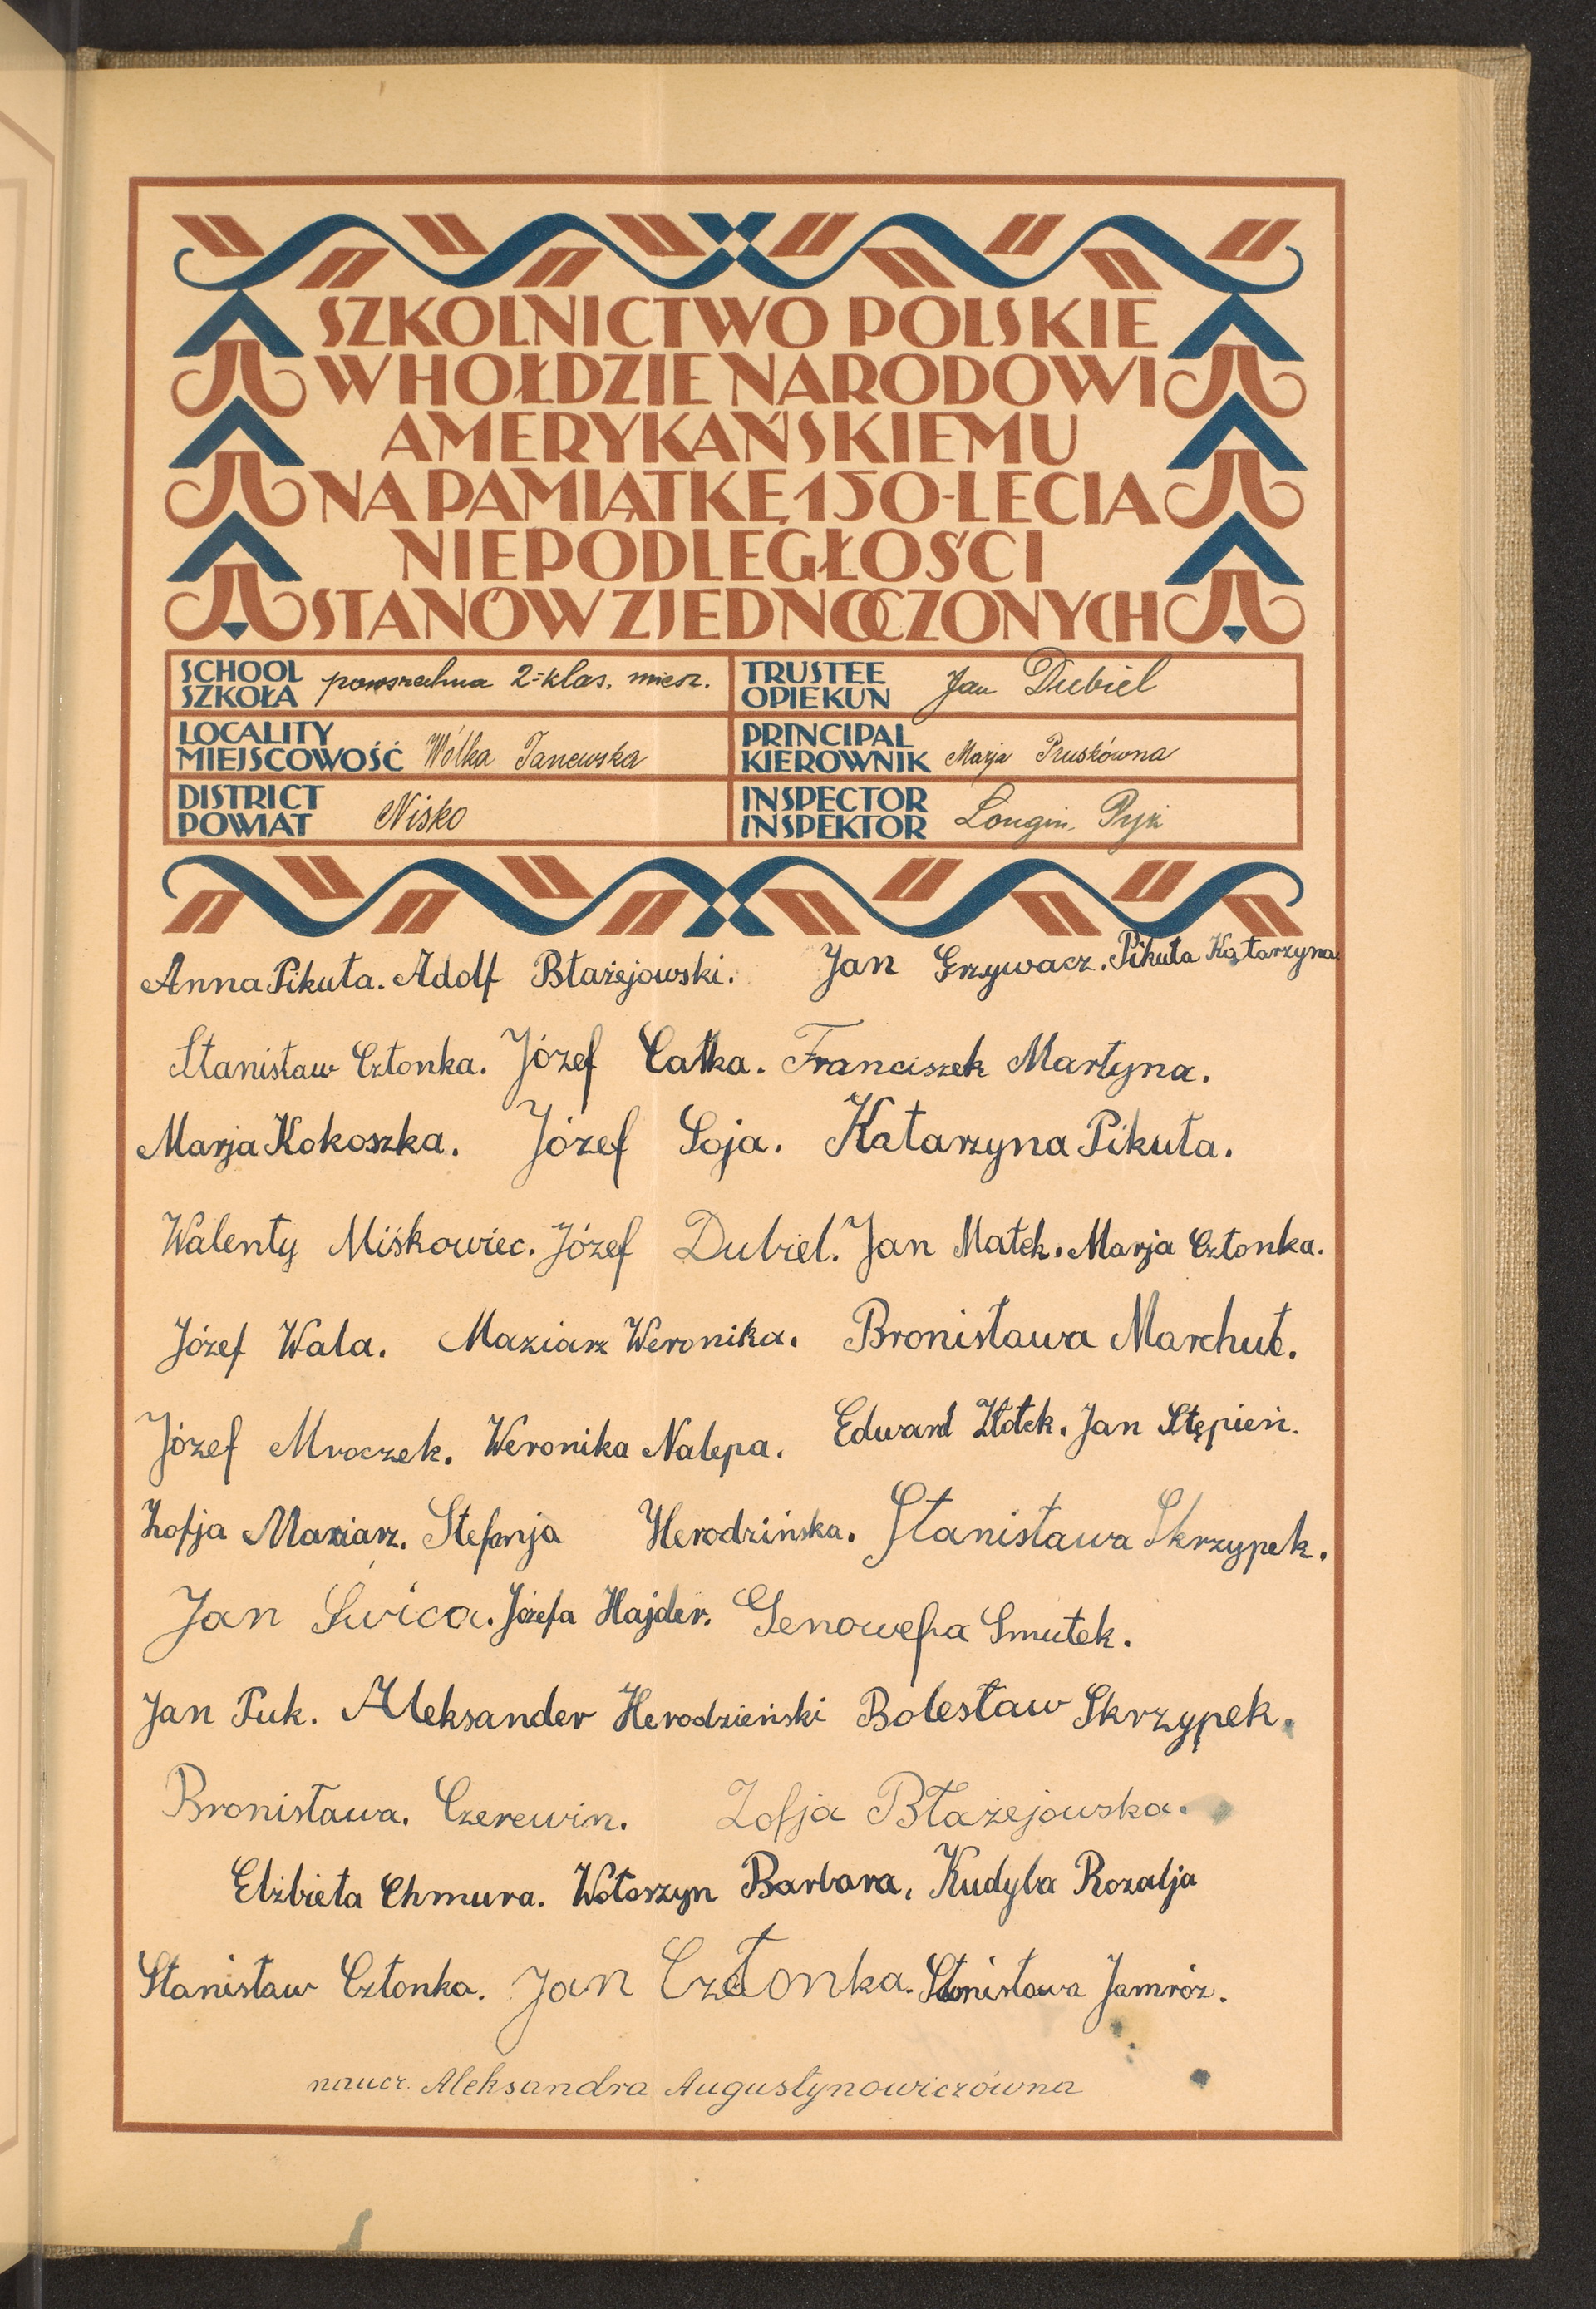 SZKOLNICTWO POLSKIE
W HOŁDZIE NARODOWI
AMERYKAŃSKIEMU
NA PAMIĄTKĘ 150-LECIA
NIEPODLEGŁOŚCI
STANÓW ZJEDNOCZONYCH
SCHOOL
SZKOŁA powszechna 2-klas. miesz.
TRUSTEE
OPIEKUN Jan Dubiel
LOCALITY
MIEJSCOWOŚĆ Wólka Tanewska
PRINCIPAL
KIEROWNIK Marja Pruskówna
DISTRICT
POWIAT Nisko
INSPECTOR
INSPEKTOR Longin
Anna Pikuła. Adolf Błażejowski. Jan Grzywacz. Pikuła Katarzyna
Stanisław Członka. Józef Całka. Franciszek Martyna.
Marja Kokoszka. Józef Soja. Katarzyna Pikuła.
Walenty Miśkowiec. Józef Dubiel. Jan Małek. Marja Członka.
Józef Wala. Maziarz Weronika. Bronisława Marchut.
Józef Mroczek. Weronika Nalepa. Edward Złotek. Jan Stępień.
Zofja Maziarz. Stefanja Herodzińska. Stanisława Skrzypek.
Jan Swica. Józefa Hajder. Genowefa Smutek.
Jan Puk. Aleksander Herodzieński Bolesław Skrzypek.
Bronisława. Czerewin. Zofja Błażejowska.
Elżbieta Chmura. Wołoszyn Barbara, Kudyba Rozalja
Stanisław Członka. Jan Członka. Stanisława Jamróz.
naucz. Aleksandra Augustynowiczówna